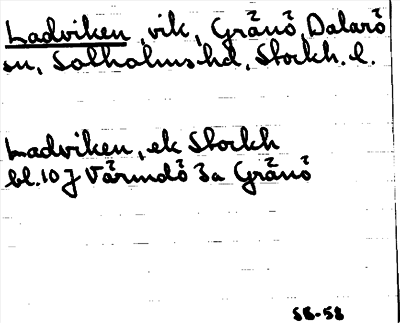 Ladviken, vik, Gränö, Dalarö
sn, Sotholms hd, Stockh. l.
Ladviken, ek Stockh
bl. 10 J Värmdö 3a Gränö
SB-58